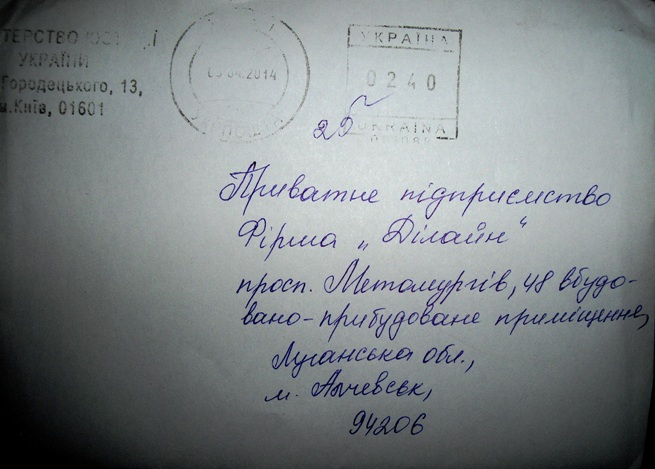 УКРАЇНИ
Городецького, 13,
м.Київ, 01601
04.2014
УКРАЇНА
0240
UKRAINA
Приватне підприємство
Фірма „Ділайн"
просп. Металургів, 48 вбудо-
вано-прибудоване приміщення,
Луганська обл.,
м. Алчевськ,
94206